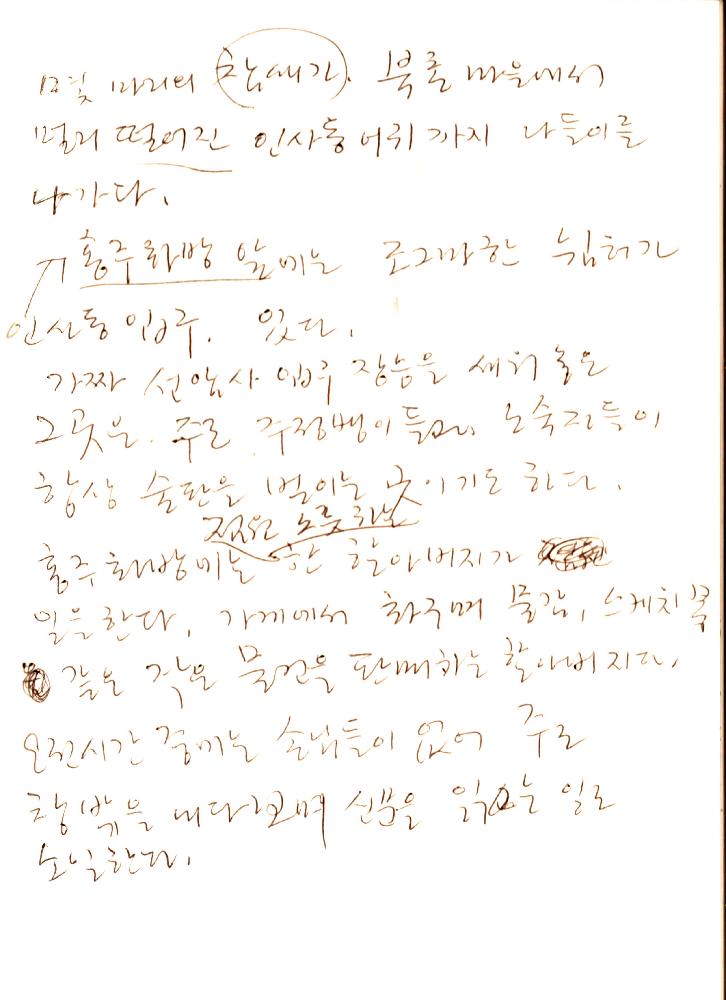 몇 마리의 참새가. 북촌 마을에서
멀리 떨어진 인사동 어귀 까지 나들이를
나가다.
홍주화방 앞에는 조그마한 쉼터가
인사동 입구. 있다.
가짜 선암사 입구 장승을 세워 놓은
그곳은. 주로 주정뱅이들과. 노숙자들이
항상 술판을 벌이는 곳이기도 하다.
점원 노릇하는
홍주화방에는 한 할아버지가
일을한다. 가게에서 화구며 물감, 스케치북
같은 작은 물건을 판매하는 할아버지다.
오전시간 중에는 손님들이 없어 주로
창밖을 내다보며 신문을 읽는 일로
소일한다.